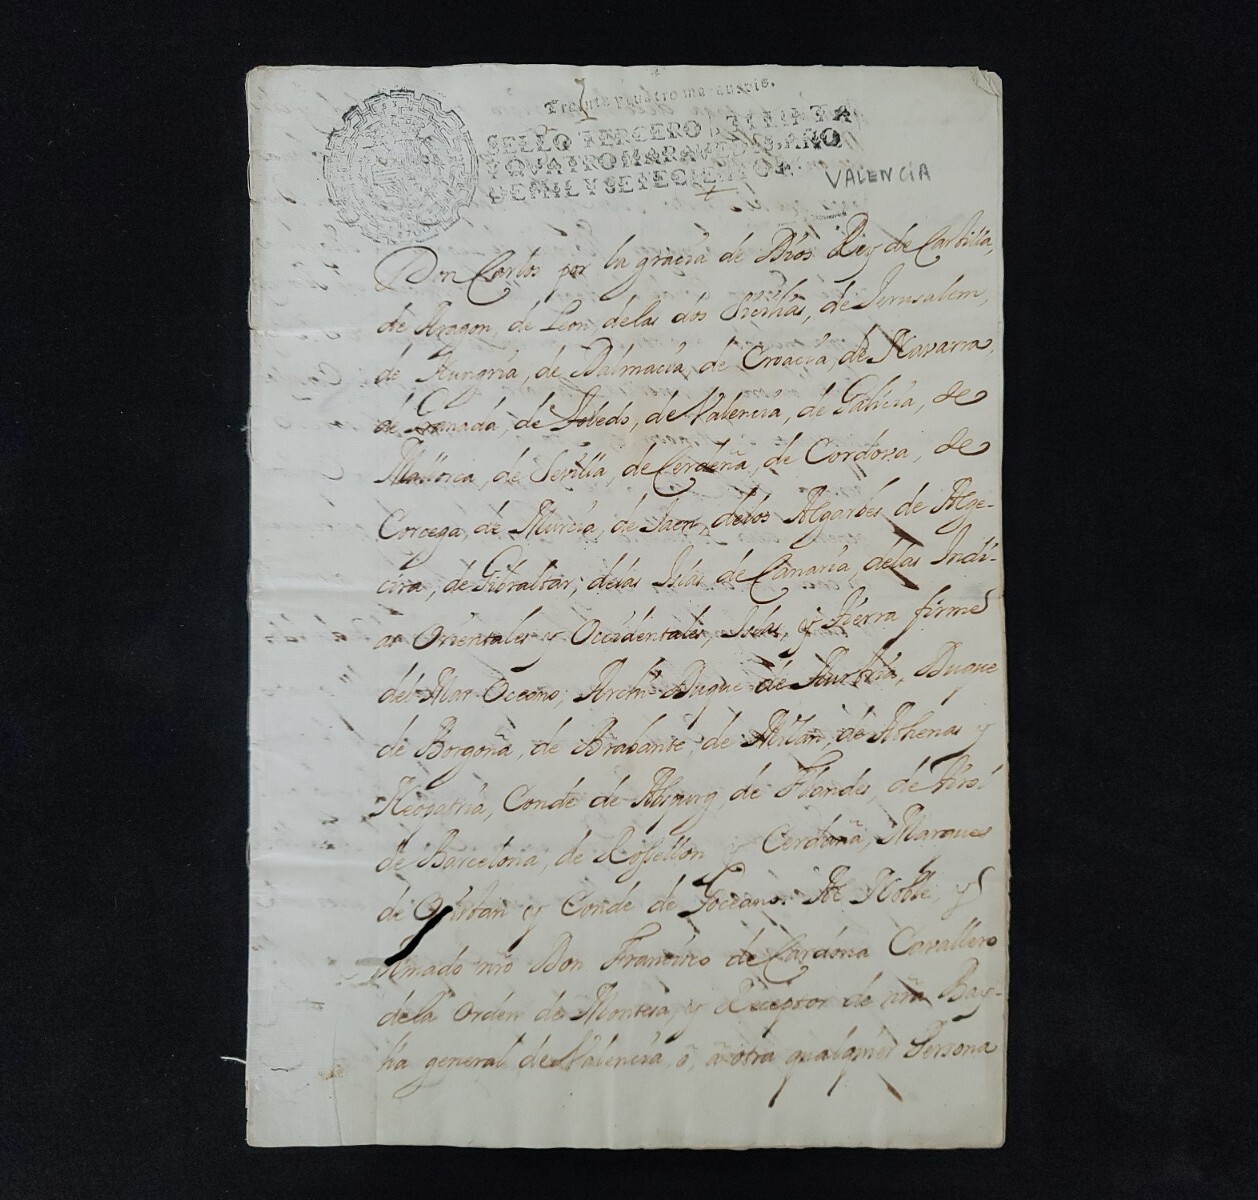 Treinta y quatro marauedis.
SELLO TERCERO, TREINTA
Y QVATRO MARAVEDIS, AÑO
DE MIL Y SETECIENTOS
VALENCIA
Don Carlos por la gracia de Dios Rey de Castilla,
de Aragon, de Leon, delas dos Sicilias, de Jerusalem,
de Hungria, de Dalmacia, de Croacia, de Navarra,
de Granada, de Toledo, de Valencia, de Galicia, de
Mallorca, de Sevilla, de Cerdeña, de Cordova, de
Corcega, de Murcia, de Jaen, delos Algarbes de Alge-
cira, de Gibraltar, delas Islas de Canaria, delas Indi-
as Orientales y Occidentales, Islas, y tierra firme
del Mar Oceano, Archi Duque de Austria, Duque
de Borgoña, de Brabante, de Milan, de Athenas y
Neopatria, Conde de Abspurg, de Flandes, de Tirol
de Barcelona, de Rossellon y Cerdaña, Marques
de Oristan y Conde de Goceano. Al Noble, y
Amado nrõ Don Francisco de Cardona Cavallero
dela Orden de Montesa, y Receptor de nrã Bay-
lia general de Valencia, ó, a otra qualquier Persona